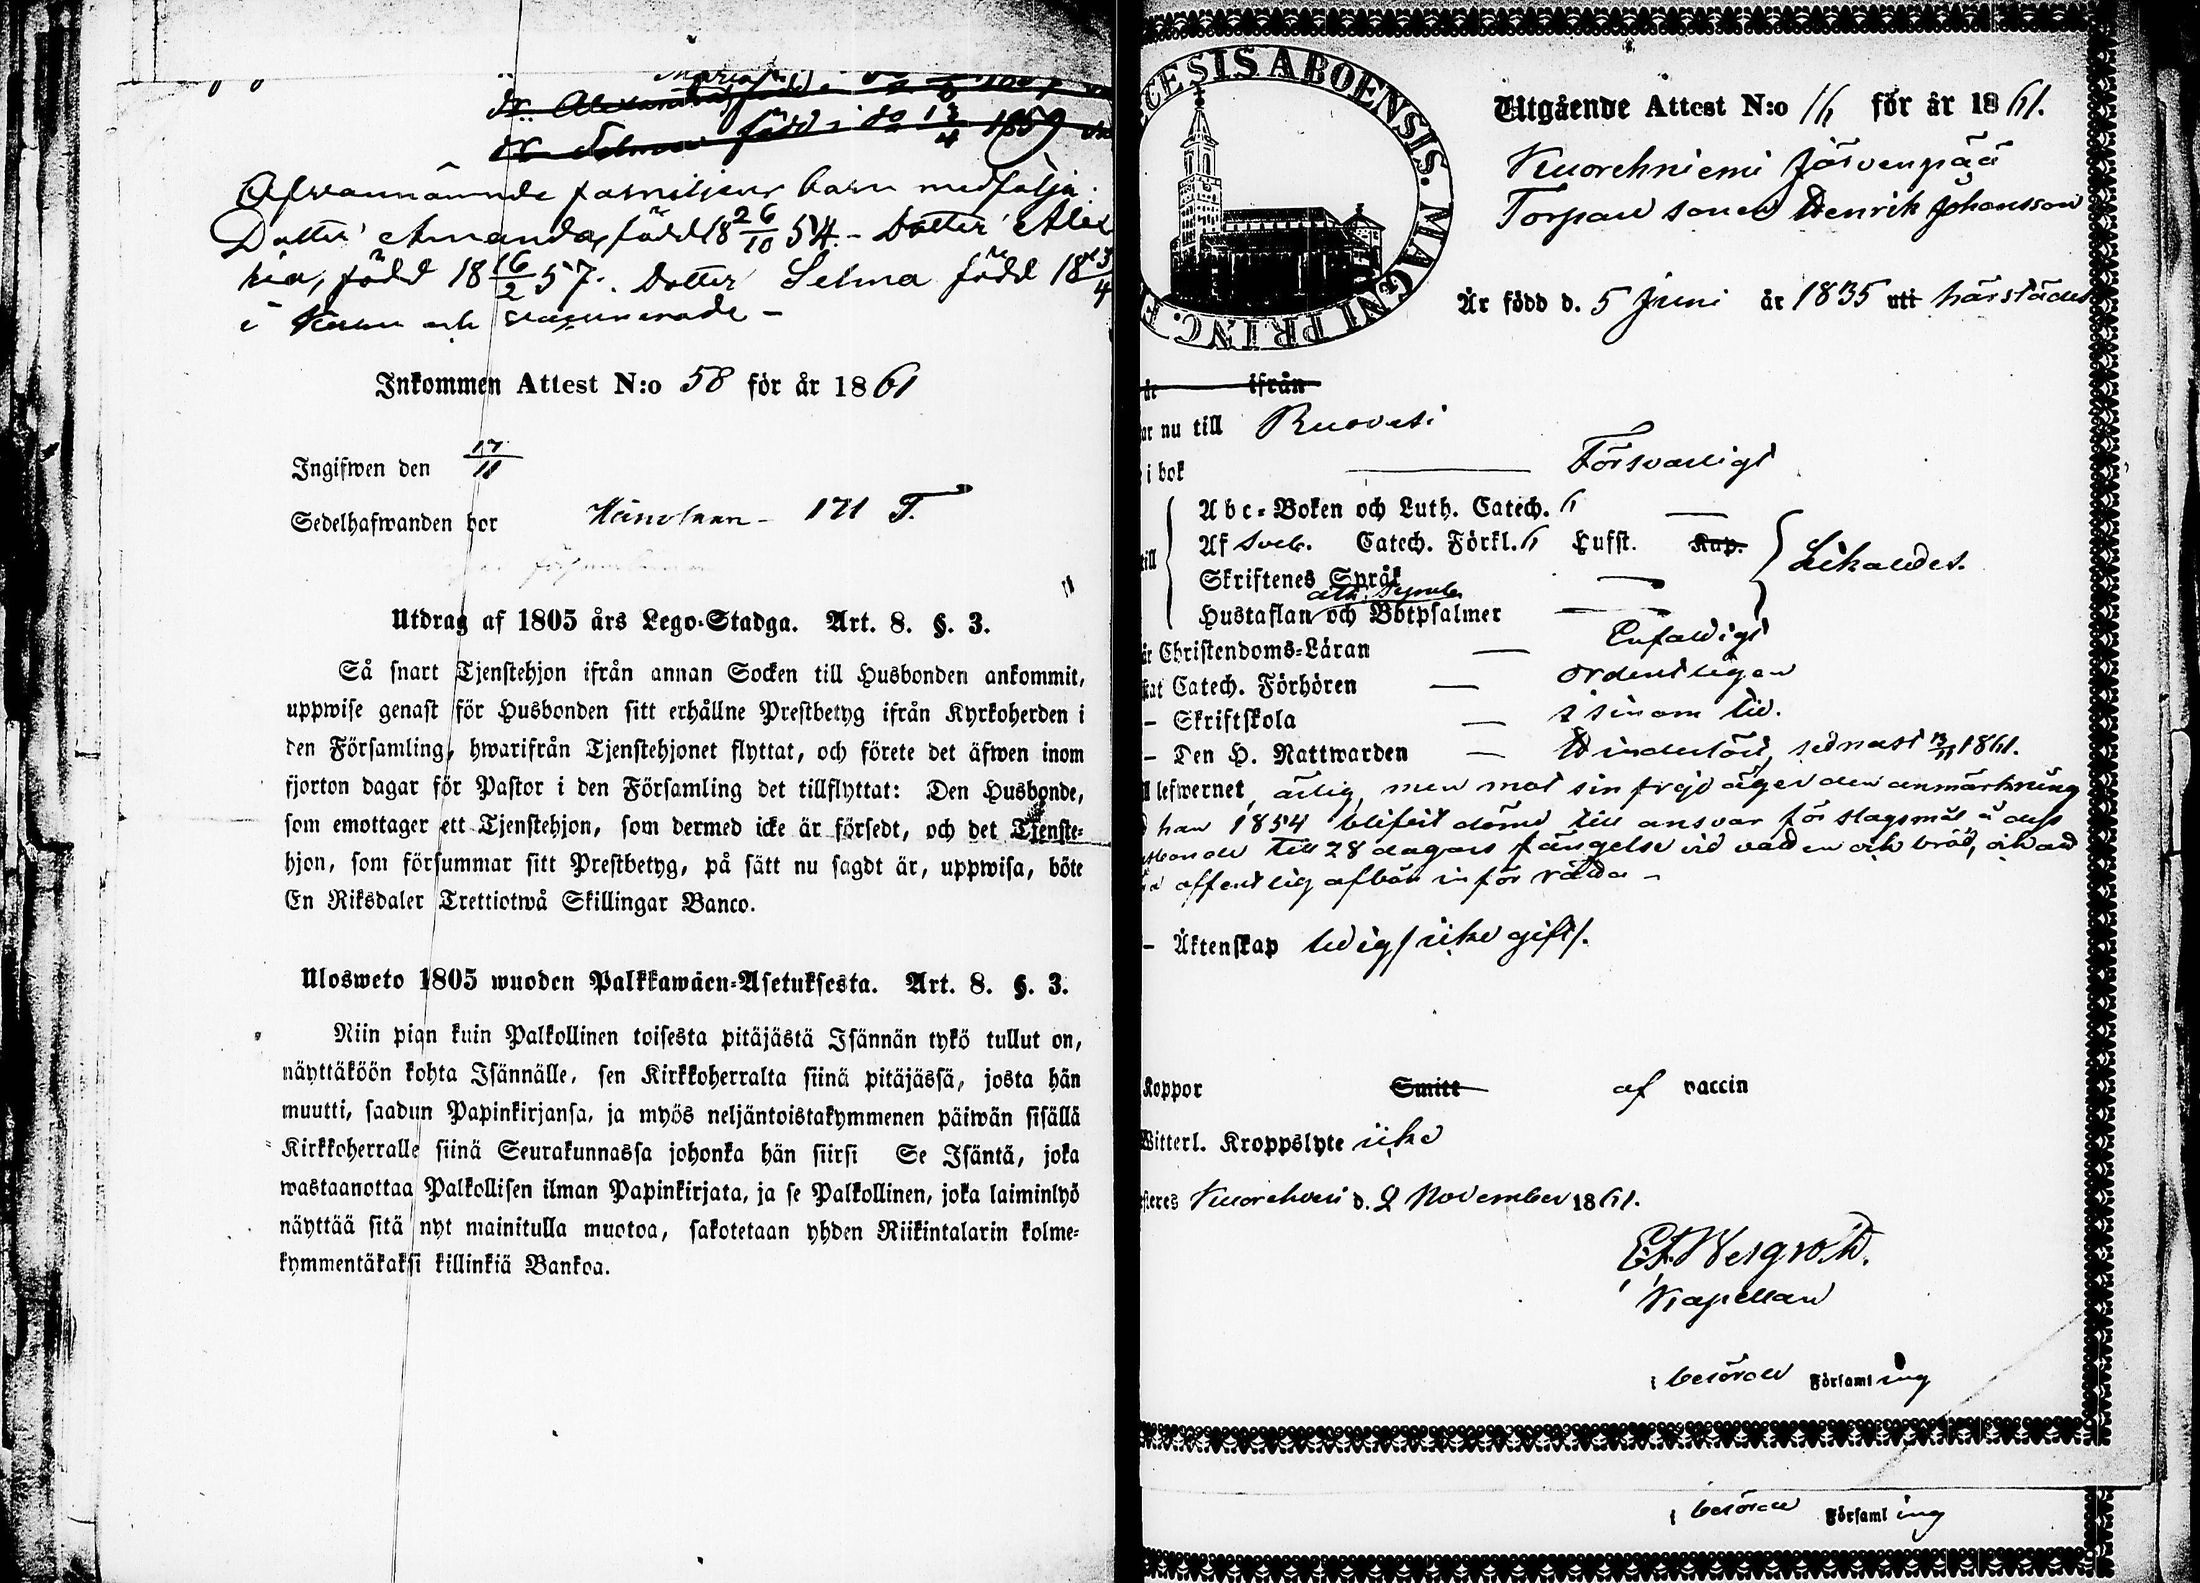 Maria
Dr. Alexandra född i do
Dr. Selma född i do 13/4 1859
Ofvannämnde familjens barn medfölja.
Dotter Amanda, född 18 26/10 54. – Dotter Alex
ria, född 18 16/2 57. Dotter Selma född 18 13/4
i Keuru och vaccinerade –
Inkommen Attest N:o 58 för år 1861
Ingifwen den 17/11
Sedelhafwanden bor 171 T.
Utdrag af 1805 års Lego-Stadga. Art. 8. §. 3.
Så snart Tjenstehjon ifrån annan Socken till Husbonden ankommit,
uppwise genast för Husbonden sitt erhållne Prestbetyg ifrån Kyrkoherden i
den Församling, hwarifrån Tjenstehjonet flyttat, och förete det äfwen inom
fjorton dagar för Pastor i den Församling det tillflyttat: Den Husbonde,
som emottager ett Tjenstehjon, som dermed icke är försedt, och det Tjenste-
hjon, som försummar sitt Prestbetyg, på sätt nu sagdt är, uppwisa, böte
En Riksdaler Trettiotwå Skillingar Banco.
Ulosweto 1805 wuoden Palkkawäen-Asetuksesta. Art. 8. §. 3.
Niin pian kuin Palkollinen toisesta pitäjästä Isännän tykö tullut on,
näyttäköön kohta Isännälle, sen Kirkkoherralta siinä pitäjässä, josta hän
muutti, saadun Papinkirjansa, ja myös neljäntoistakymmenen päiwän sisällä
Kirkkoherralle siinä Seurakunnassa johonka hän siirsi Se Isäntä, joka
wastaanottaa Palkollisen ilman Papinkirjata, ja se Palkollinen, joka laiminlyö
näyttää sitä nyt mainitulla muotoa, sakotetaan yhden Riikintalarin kolme-
kymmentäkaksi killinkiä Bankoa.
ECESIS ABOENSIS. MAGNI PRINC. F
Utgående Attest N:o 16 för år 1861.
Kuorehniemi Järvenpää
Torpare sonen Henrik Johansson
Är född d. 5 Juni år 1835 uti härstädes
de ifrån
ar nu till Ruovesi
i bok Försvarligt
Abc-Boken och Luth. Catech. 6
till Af Sveb. Catech. Förkl. 6 Hufst. Kap. Likaledes.
Skriftenes Språk
ath. Symb.
Hustaflan och Botpsalmer
är Christendoms-Läran Enfaldigt
stat Catech. Förhören ordentligen
– Skriftskola i sinom tid.
– Den H. Nattwarden Vinterlöst, sednast 13/11 1861.
ll lefwernet ärlig, men mot sin frejd äger den anmärkning
han 1854 blifvit dömd till ansvar för slagsmål å dess
husbonde till 28 dagars fängelse vid vatten och bröd, och att
offentlig afbön inför rätta –
– Äktenskap ledig / icke gift /.
Koppor Smitt af vaccin
Witterl. Kroppslyte icke
steres Kuorehvesi d. 2 November 1861.
E. F. Wegroth.
Kapellan
i berörde Församling
i berörde Församling